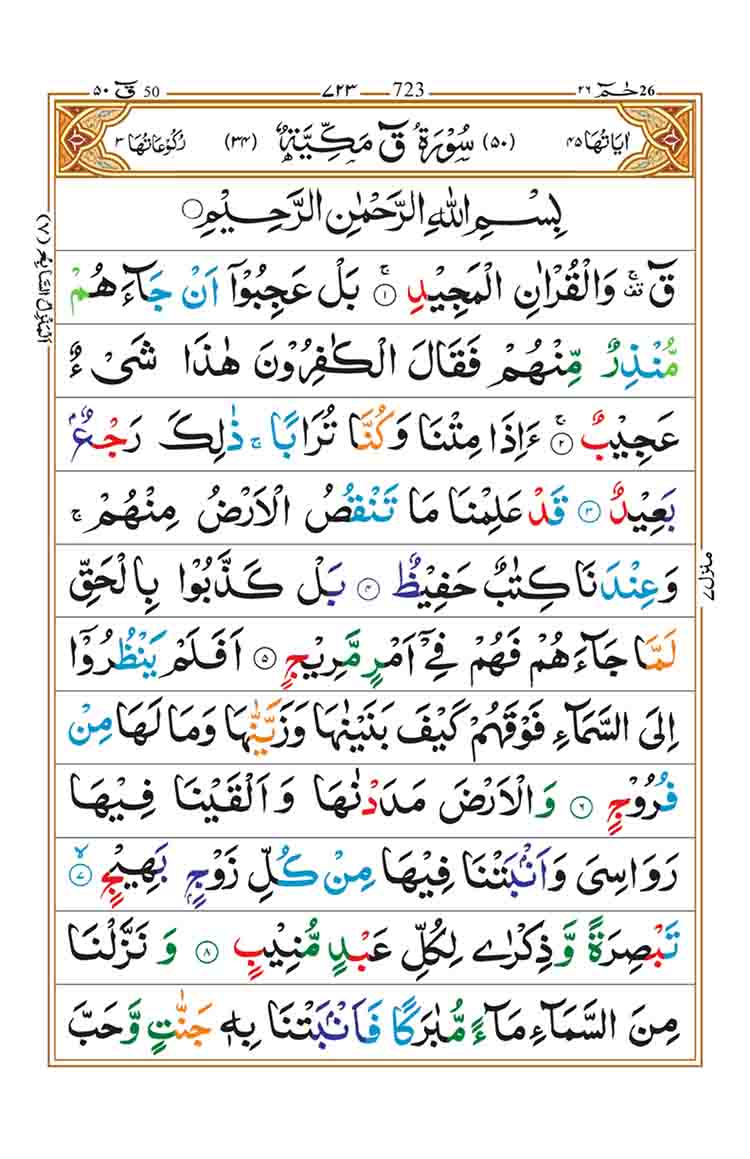 26 حٰمٓ ٢٦ 723 ٧٢٣ 50 قٓ ٥٠
اٰيَاتُهَا ٤٥ (٥٠) سُوْرَةُ قٓ مَكِّيَّةٌ (٣٤) رُكُوْعَاتُهَا ٣
بِسْمِ اللّٰهِ الرَّحْمٰنِ الرَّحِيْمِ ۝
قٓ ۚ وَالْقُرْاٰنِ الْمَجِيْدِ ۚ ۝١ بَلْ عَجِبُوْۤا اَنْ جَآءَهُمْ
مُّنْذِرٌ مِّنْهُمْ فَقَالَ الْكٰفِرُوْنَ هٰذَا شَیْءٌ
عَجِيْبٌ ۚ ۝٢ ءَاِذَا مِتْنَا وَكُنَّا تُرَابًا ۚ ذٰلِكَ رَجْعٌۢ
بَعِيْدٌ ۝٣ قَدْ عَلِمْنَا مَا تَنْقُصُ الْاَرْضُ مِنْهُمْ ۚ
وَعِنْدَنَا كِتٰبٌ حَفِيْظٌ ۝٤ بَلْ كَذَّبُوْا بِالْحَقِّ
لَمَّا جَآءَهُمْ فَهُمْ فِیْۤ اَمْرٍ مَّرِيْجٍ ۝٥ اَفَلَمْ يَنْظُرُوْۤا
اِلَی السَّمَآءِ فَوْقَهُمْ كَيْفَ بَنَيْنٰهَا وَزَيَّنّٰهَا وَمَا لَهَا مِنْ
فُرُوْجٍ ۝٦ وَالْاَرْضَ مَدَدْنٰهَا وَاَلْقَيْنَا فِيْهَا
رَوَاسِیَ وَاَنْۢبَتْنَا فِيْهَا مِنْ كُلِّ زَوْجٍۭ بَهِيْجٍ ۙ ۝٧
تَبْصِرَةً وَّذِكْرٰی لِكُلِّ عَبْدٍ مُّنِيْبٍ ۝٨ وَنَزَّلْنَا
مِنَ السَّمَآءِ مَآءً مُّبٰرَكًا فَاَنْۢبَتْنَا بِهٖ جَنّٰتٍ وَّحَبَّ
اَلْمَنْزِلُ السَّابِعُ (٧)
منزل ٧